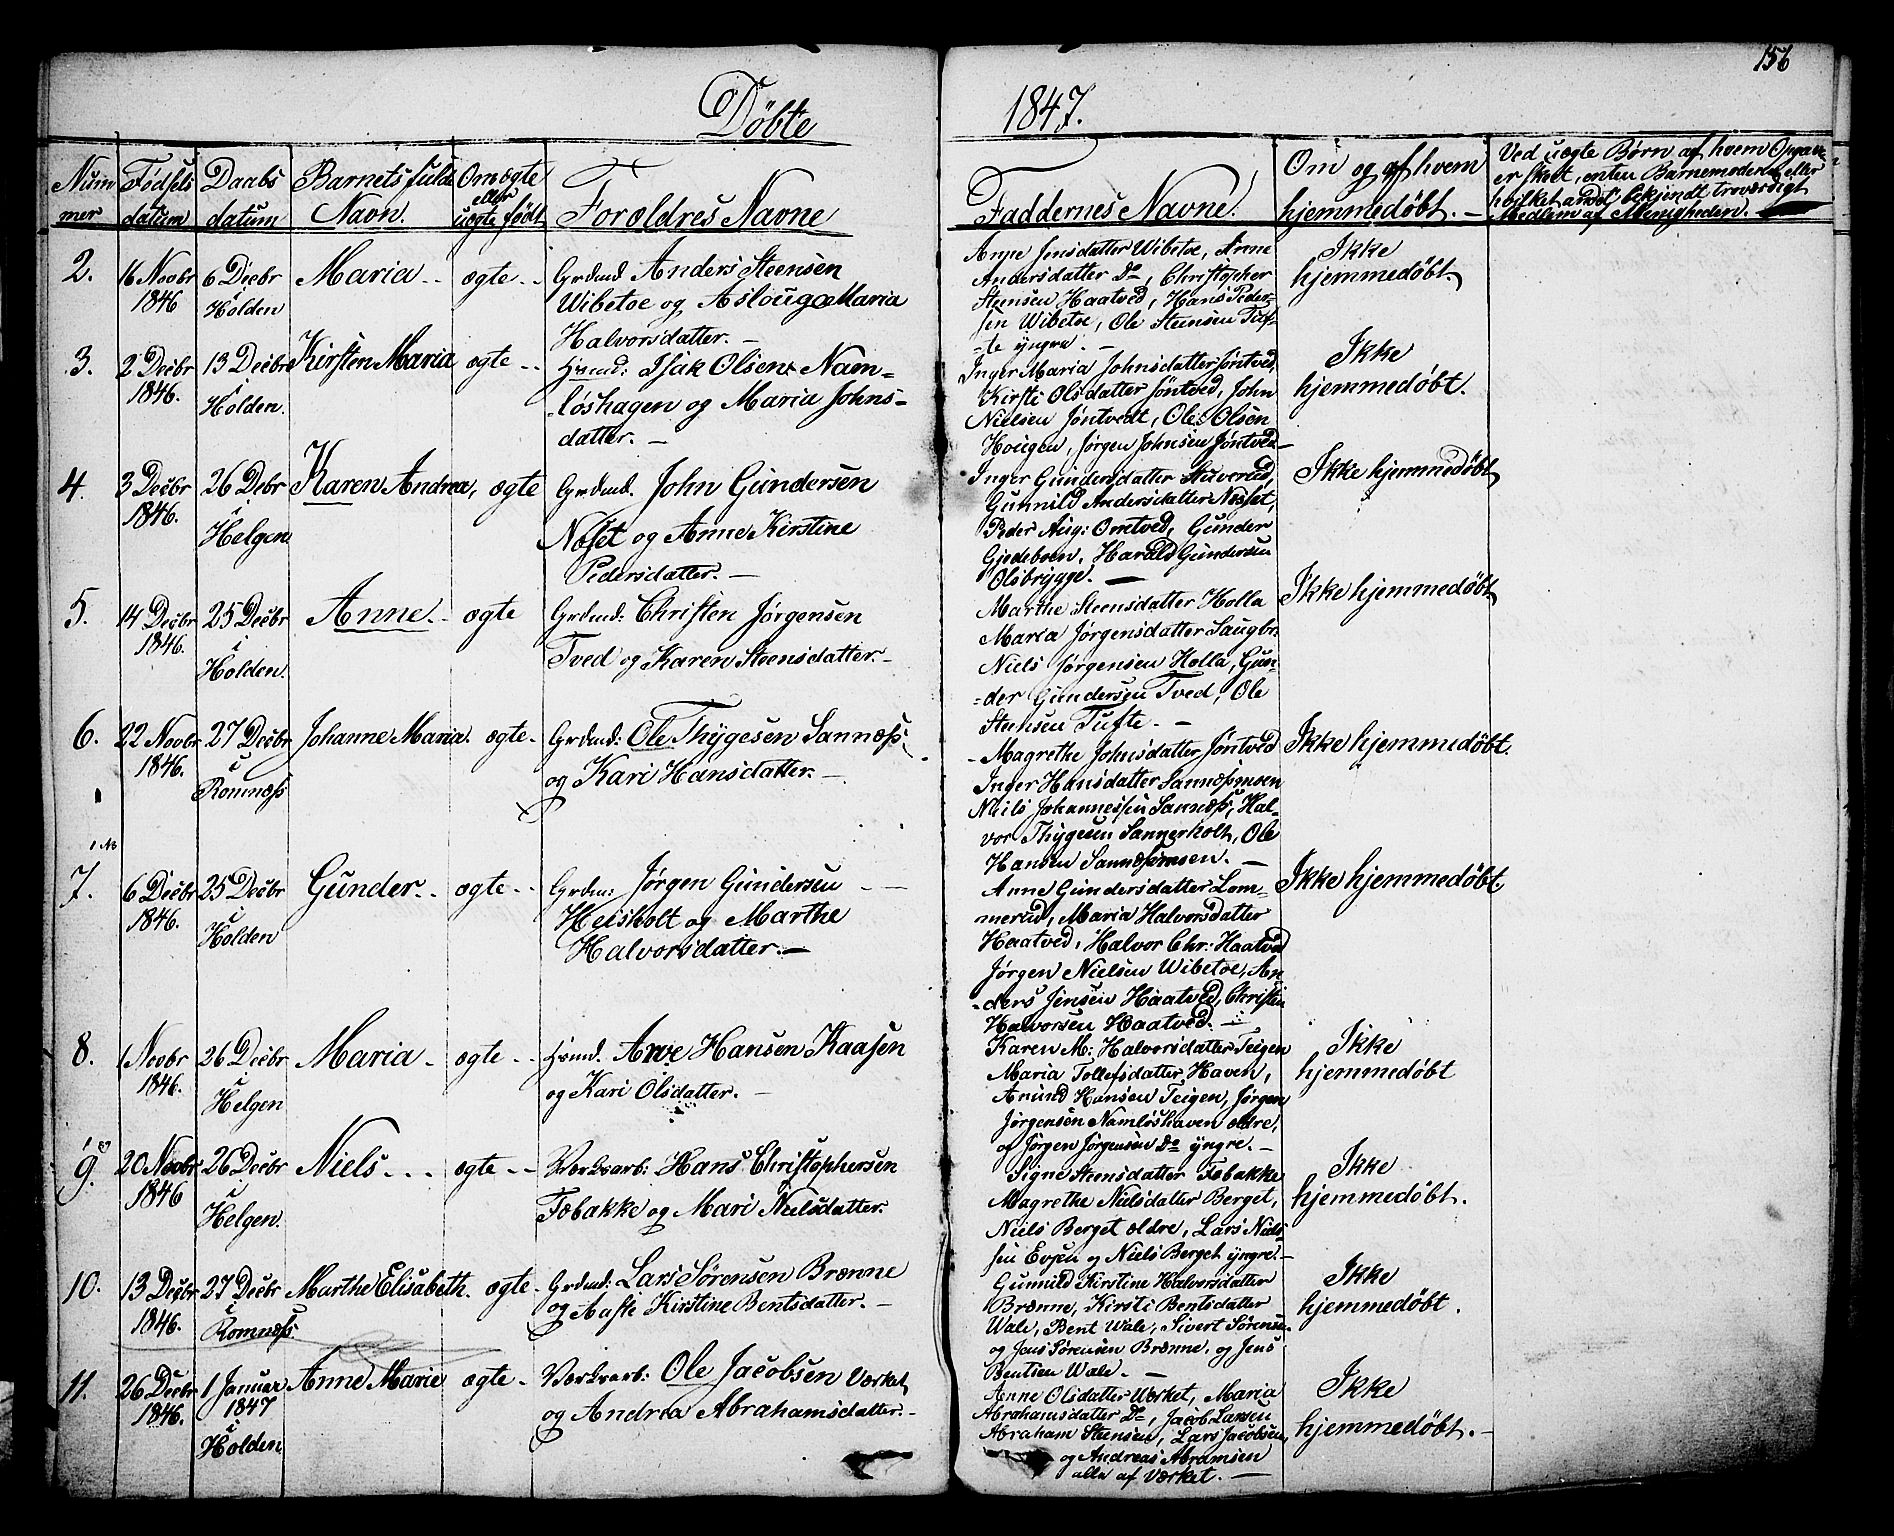 156
Döbte 1847.
Num
mer
Födsels
datum
Daabs
datum
Barnets fulde
Navn.
Om ægte
eller
uægte født
Forældres Navne
Faddernes Navne.
Om og af hvem
hjemmedøbt. -
Ved uægte Børn af hvem Opgave
er skeet, enten Barnemoderen eller
hvilket andet bekjendt troværdigt
Medlem af Menigheden.
2.
16 Novbr
1846
6 Decbr
i
Holden
Maria
ægte
Grdmd. Anders Steensen
Wibetoe og Asloug Maria
Halvorsdatter. -
Anne Jensdatter Wibetoe, Anne
Andersdatter Do, Christopher
Steensen Haatved, Hans Peder-
sen Wibetoe, Ole Steensen Tuf-
-te yngre. -
Ikke
hjemmedøbt.
3.
2 Decbr
1846.
13 Decbr
i
Holden.
Kirsten Maria
ægte
Hsmd: Isak Olsen Nam-
-løshagen og Maria Johns-
datter. -
Inger Maria Johnsdatter Jøntved,
Kirsti Olsdatter Jøntved, John
Nielsen Jøntvedt, Ole Olsen
Hougen, Jørgen Johnsen Jøntved
Ikke
hjemmedøbt.
4.
3 Decbr
1846.
26 Debr
i
Helgen
Karen Andrea,
ægte
Grdmd. John Gundersen
Næset og Anne Kirstine
Pedersdatter. -
Inger Gundersdatter Stuverud,
Gunnild Andersdatter Næset,
Peder Aug: Omtved, Gunder
Gjedeboen, Harald Gundersen
Olsbrygge. -
Ikke hjemmedøbt
5.
14 Decbr
1846.
25 Decbr
i
Holden.
Anne
ægte
Grdmd: Christen Jørgensen
Tved og Karen Steensdatter. -
Marthe Steensdatter Holla
Maria Jørgensdatter Saugbr:
Niels Jørgensen Holla, Gun-
-der Gundersen Tved, Ole
Steensen Tufte. -
Ikke hjemmedøbt
6.
22 Novbr
1846.
27 Decbr
i
Romnæss
Johanne Maria.
ægte
Grdmd: Ole Thygesen Sannæss
og Kari Hansdatter. -
Magrethe Johnsdatter Jøntved
Inger Hansdatter Sannæssmsen
Niels Johannessen Sannæss, Hal-
vor Thygesen Sannerholt, Ole
Hansen Sannæsmsen. -
Ikke hjemmedøbt.
7.
6 Decbr
1846.
25 Decbr
i
Holden
Gunder
ægte
Grdm: Jørgen Gundersen
Heisholt og Marthe
Halvorsdatter. -
Anne Gundersdatter Lom-
merud, Maria Halvorsdatter
Haatved, Halvor Chr: Haatved
Jørgen Nielsen Wibetoe, An
-ders Jensen Haatved, Christen
Halvorsen Haatved. -
Ikke hjemmedøbt
8.
1 Novbr
1846.
26 Decbr
i
Helgen
Maria
ægte
Hsmd. Arve Hansen Kaasen
og Kari Olsdatter. -
Karen M: Halvorsdatter Teigen
Maria Tollefsdatter Haven,
Amund Hansen Teigen, Jørgen
Jørgensen Namløshaven ældre,
og Jørgen Jørgensen Do yngre. -
Ikke
hjemmedøbt
9.
20 Novbr
1846
26 Decbr
i
Helgen.
Niels
ægte
Værksarb: Hans Christophersen
Tobakke og Mari Nielsdatter.
Signe Steensdatter Tobakke
Magrethe Nielsdatter Berget,
Niels Berget ældre, Lars Niel-
sen Evjen og Niels Berget yngre. -
Ikke
hjemmedøbt.
10.
13 Decbr
1846.
27 Decbr
i
Romnæss
Marthe Elisabeth.
ægte
Grdmd: Lars Sørensen Brænne
og Aaste Kirstine Bentsdatter. -
Gunnild Kirstine Halvorsdatter
Brænne, Kirsti Bentsdatter
Wale, Bent Wale, Sivert Sørensen
og Jens Sørensen Brænne, og Jens
Bentsen Wale. -
Ikke
hjemmedøbt.
11.
26 Decbr
1846.
1 Januar
1847
i
Holden
Anne Marie
ægte
Værksarb: Ole Jacobsen Værket
og Andrea Abrahamsdatter. -
Anne Olsdatter Værket, Maria
Abrahamsdatter Do, Jacob Larsen
Abraham Steensen, Lars Jacobsen,
og Andreas Abramsen
alle af Værket. -
Ikke
hjemmedøbt. -